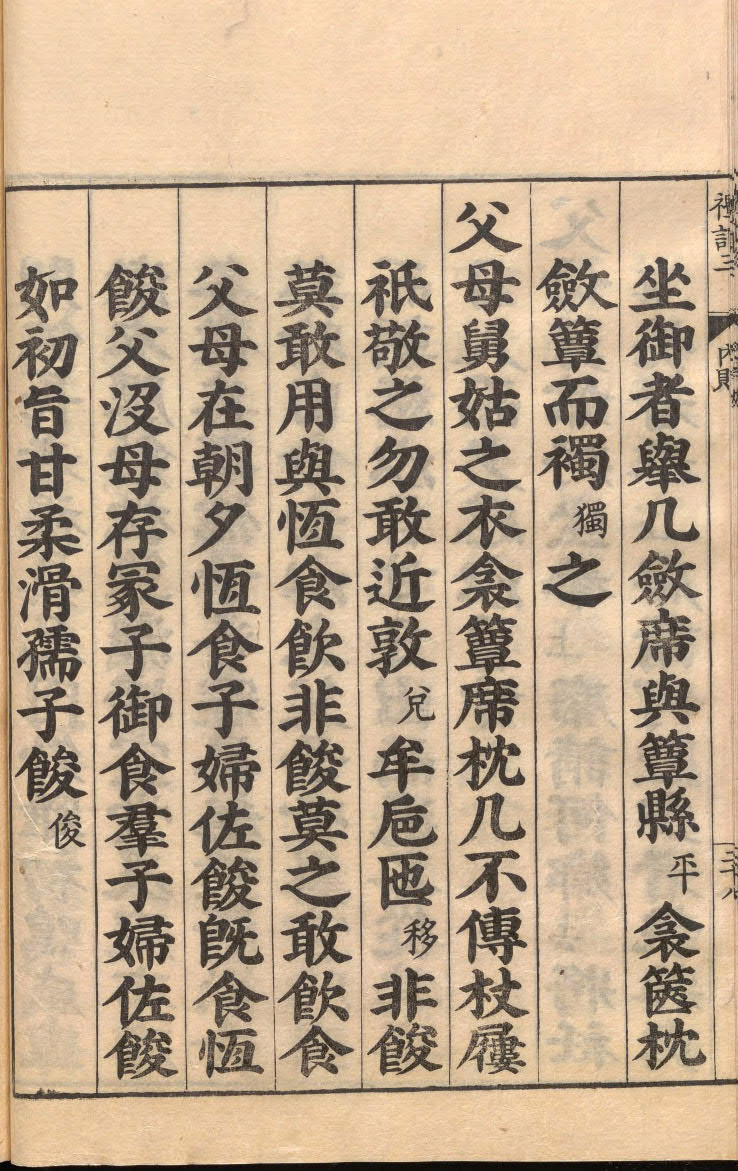 坐御者舉几斂席與簟縣平衾篋枕
斂簟而襡獨之
父母舅姑之衣衾簟席枕几不傳杖屨
祇敬之勿敢近敦兌牟巵匜移非餕
莫敢用與恆食飮非餕莫之敢飮食
父母在朝夕恆食子婦佐餕旣食恆
餕父沒母存冢子御食羣子婦佐餕
如初旨甘柔滑孺子餕俊
內則